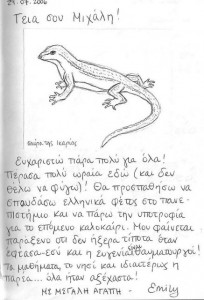 29.07.2006
Γεια σου Μιχάλη!
σαύρα της Ικαρίας
Ευχαριστώ πάρα πολύ για όλα!
Πέρασα πολύ ωραία εδώ (και δεν
θέλω να φύγω)! Θα προσπαθήσω να
σπουδάσω ελληνικά φέτος στο πανε-
πιστήμιο και να πάρω την υποτροφία
για το επόμενο καλοκαίρι. Μου φαίνεται
παράξενο ότι δεν ήξερα τίποτα όταν
έφτασα- εσύ και η ευγενία είστε θαυματουργοί!
Τα μαθήματα, το νησί και ιδιαιτέρως η
παρέα... όλα ήταν αξέχαστα!
ΜΕ ΜΕΓΑΛΗ ΑΓΑΠΗ - Emily